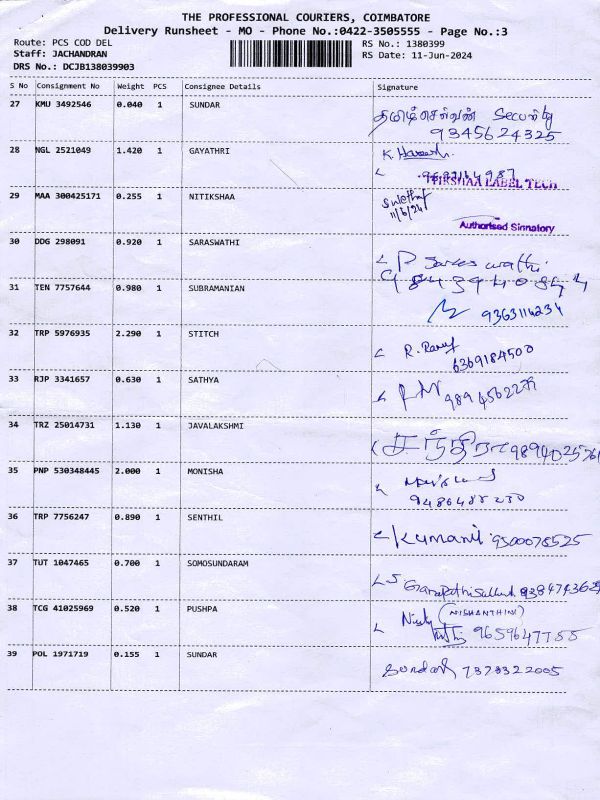 THE PROFESSIONAL COURIERS, COIMBATORE
Delivery Runsheet - MO - Phone No.:0422-3505555 - Page No.:3
Route: PCS COD DEL RS No.: 1380399
Staff: JACHANDRAN RS Date: 11-Jun-2024
DRS No.: DCJB138039903
S No Consignment No Weight PCS Consignee Details Signature
27 KMU 3492546 0.040 1 SUNDAR தமிழ்செல்வன் Security
9345624325
28 NGL 2521049 1.420 1 GAYATHRI K. Haresh
LABEL TECH
29 MAA 300425171 0.255 1 NITIKSHAA Swetha
11/6/24
Authorised Signatory
30 DDG 298091 0.920 1 SARASWATHI P Saraswathi
31 TEN 7757644 0.980 1 SUBRAMANIAN
9363114234
32 TRP 5976935 2.290 1 STITCH R. Ramy
6369184500
33 RJP 3341657 0.630 1 SATHYA
34 TRZ 25014731 1.130 1 JAVALAKSHMI சந்திரா
35 PNP 530348445 2.000 1 MONISHA
9486488230
36 TRP 7756247 0.890 1 SENTHIL Kumani 9500078525
37 TUT 1047465 0.700 1 SOMOSUNDARAM
38 TCG 41025969 0.520 1 PUSHPA (NISHANTHINI)
9659647755
39 POL 1971719 0.155 1 SUNDAR Sundar 7373322005